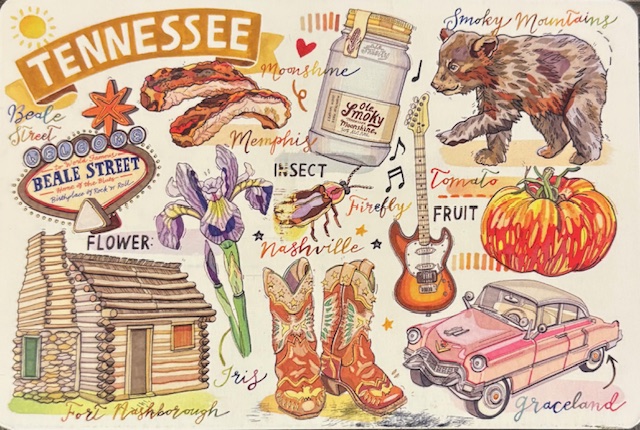 TENNESSEE
Moonshine
Smoky Mountains
Beale
Street
WELCOME
to World Famous
BEALE STREET
Home of the Blues
Birthplace of Rock 'n' Roll
Memphis
Ole
Smoky
Moonshine
INSECT
Firefly
Tomato
FRUIT
FLOWER:
Nashville
Iris
Fort Nashborough
graceland